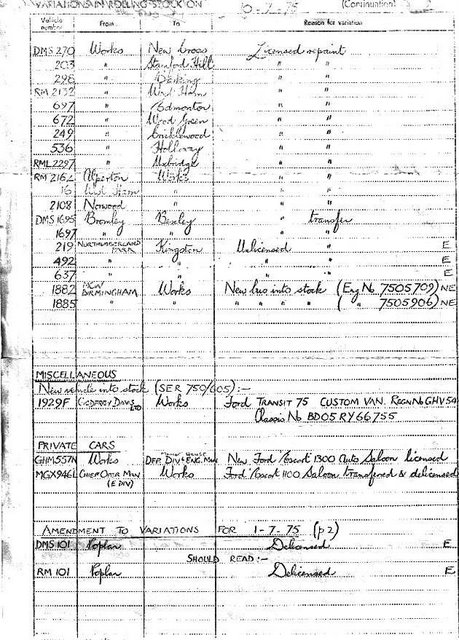 VARIATIONS IN ROLLING STOCK ON 10-7-75 (Continuation) 2
Vehicle number From To Reason for variation
DMS 270 Works New Cross Licensed repaint
203 " Stamford Hill " "
298 " Barking " "
RM 2132 " West Ham " "
697 " Edmonton " "
672 " Wood Green " "
249 " Cricklewood " "
536 " Holloway " "
RML 2297 " Uxbridge " "
RM 2162 Alperton Works " "
16 West Ham " " "
2108 Norwood " " "
DMS 1695 Bromley Bexley " transfer
1697 " " " "
219 NORTHUMBERLAND PARK Kingston Unlicensed " E
492 " " " " E
637 " " " " E
1882 MCW BIRMINGHAM Works New bus into stock (Eng No 7505709) NE
1885 " " " " " " ( " 7505906) NE
MISCELLANEOUS
New vehicle into stock (SER 750/605):-
1929F GODFREY DAVIS LTD Works Ford TRANSIT 75 CUSTOM VAN. REGN No GHV 54
Chassis No BD05RY66755
PRIVATE CARS
GHM 557N Works New Ford Escort 1300 Auto Saloon licensed
CHIEF OPER MAN (E DIV) Works Ford Escort 1100 Saloon transferred & delicensed
AMENDMENT TO VARIATIONS FOR 1-7-75 (p2)
DMS 101 Poplar Delicensed E
SHOULD READ:-
RM 101 Poplar Delicensed E